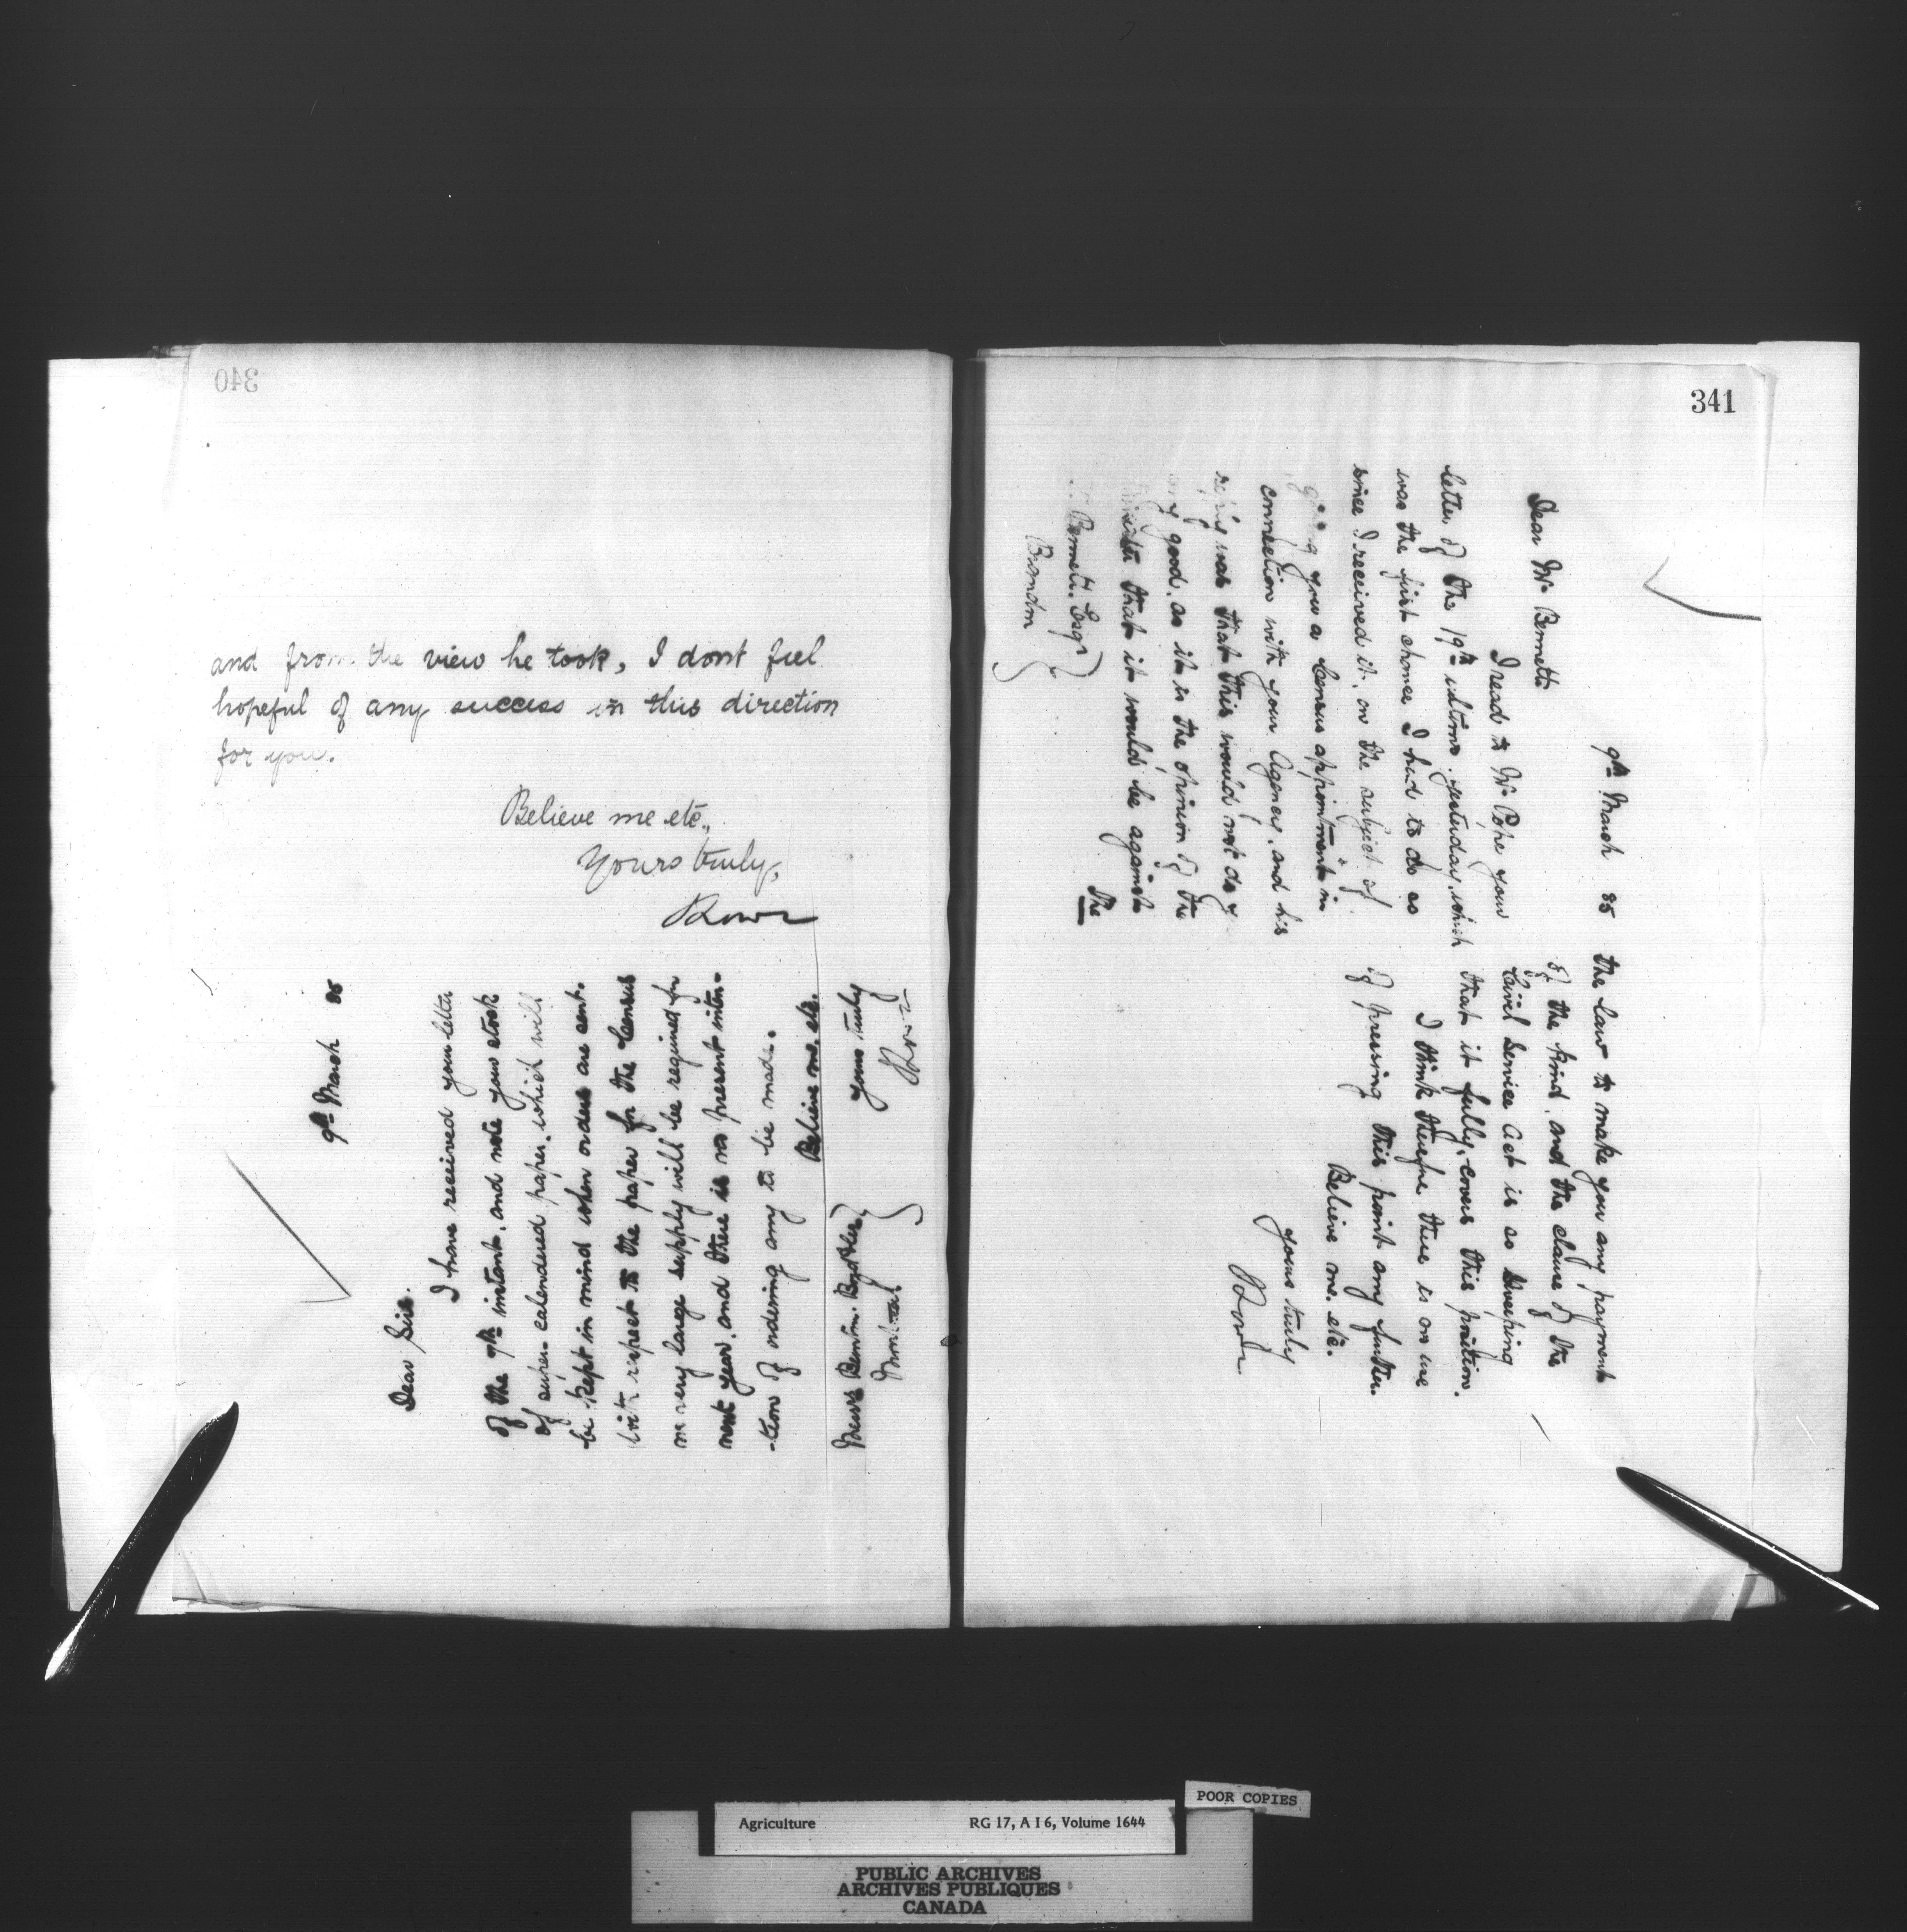 340
and from the view he took, I dont feel
hopeful of any success in this direction
for you.
Believe me etc.,
Yours truly,
9th March 85
Dear Sirs.
I have received your letter
of the 7th instant, and note your stock
of super-calendered paper, which will
be kept in mind when orders are sent.
With respect to the paper for the Census
no very large supply will be required for
next year, and there is no present inten-
-tion of ordering any to be made.
Believe me. etc.
yours truly
Messrs Benton. Brothers
Montreal
341
9th March 85
Dear Mr. Bennett
I read to Mr. Pope your
letter of the 19th ultimo. yesterday, which
was the first chance I had to do so
since I received it, on the subject of
giving you a Census appointment in
connection with your Agency, and his
reply was that this would not do you
any good, as it is the opinion of the
Minister that it would be against
The
Bennett. Esqr
Brandon
the law to make you any payment
of the kind, and the clause of the
Civil Service Act is so sweeping
that it fully covers this position.
I think therefore there is no use
of pressing this point any further.
Believe me. etc.
yours truly
Agriculture RG 17, A I 6, Volume 1644
POOR COPIES
PUBLIC ARCHIVES
ARCHIVES PUBLIQUES
CANADA